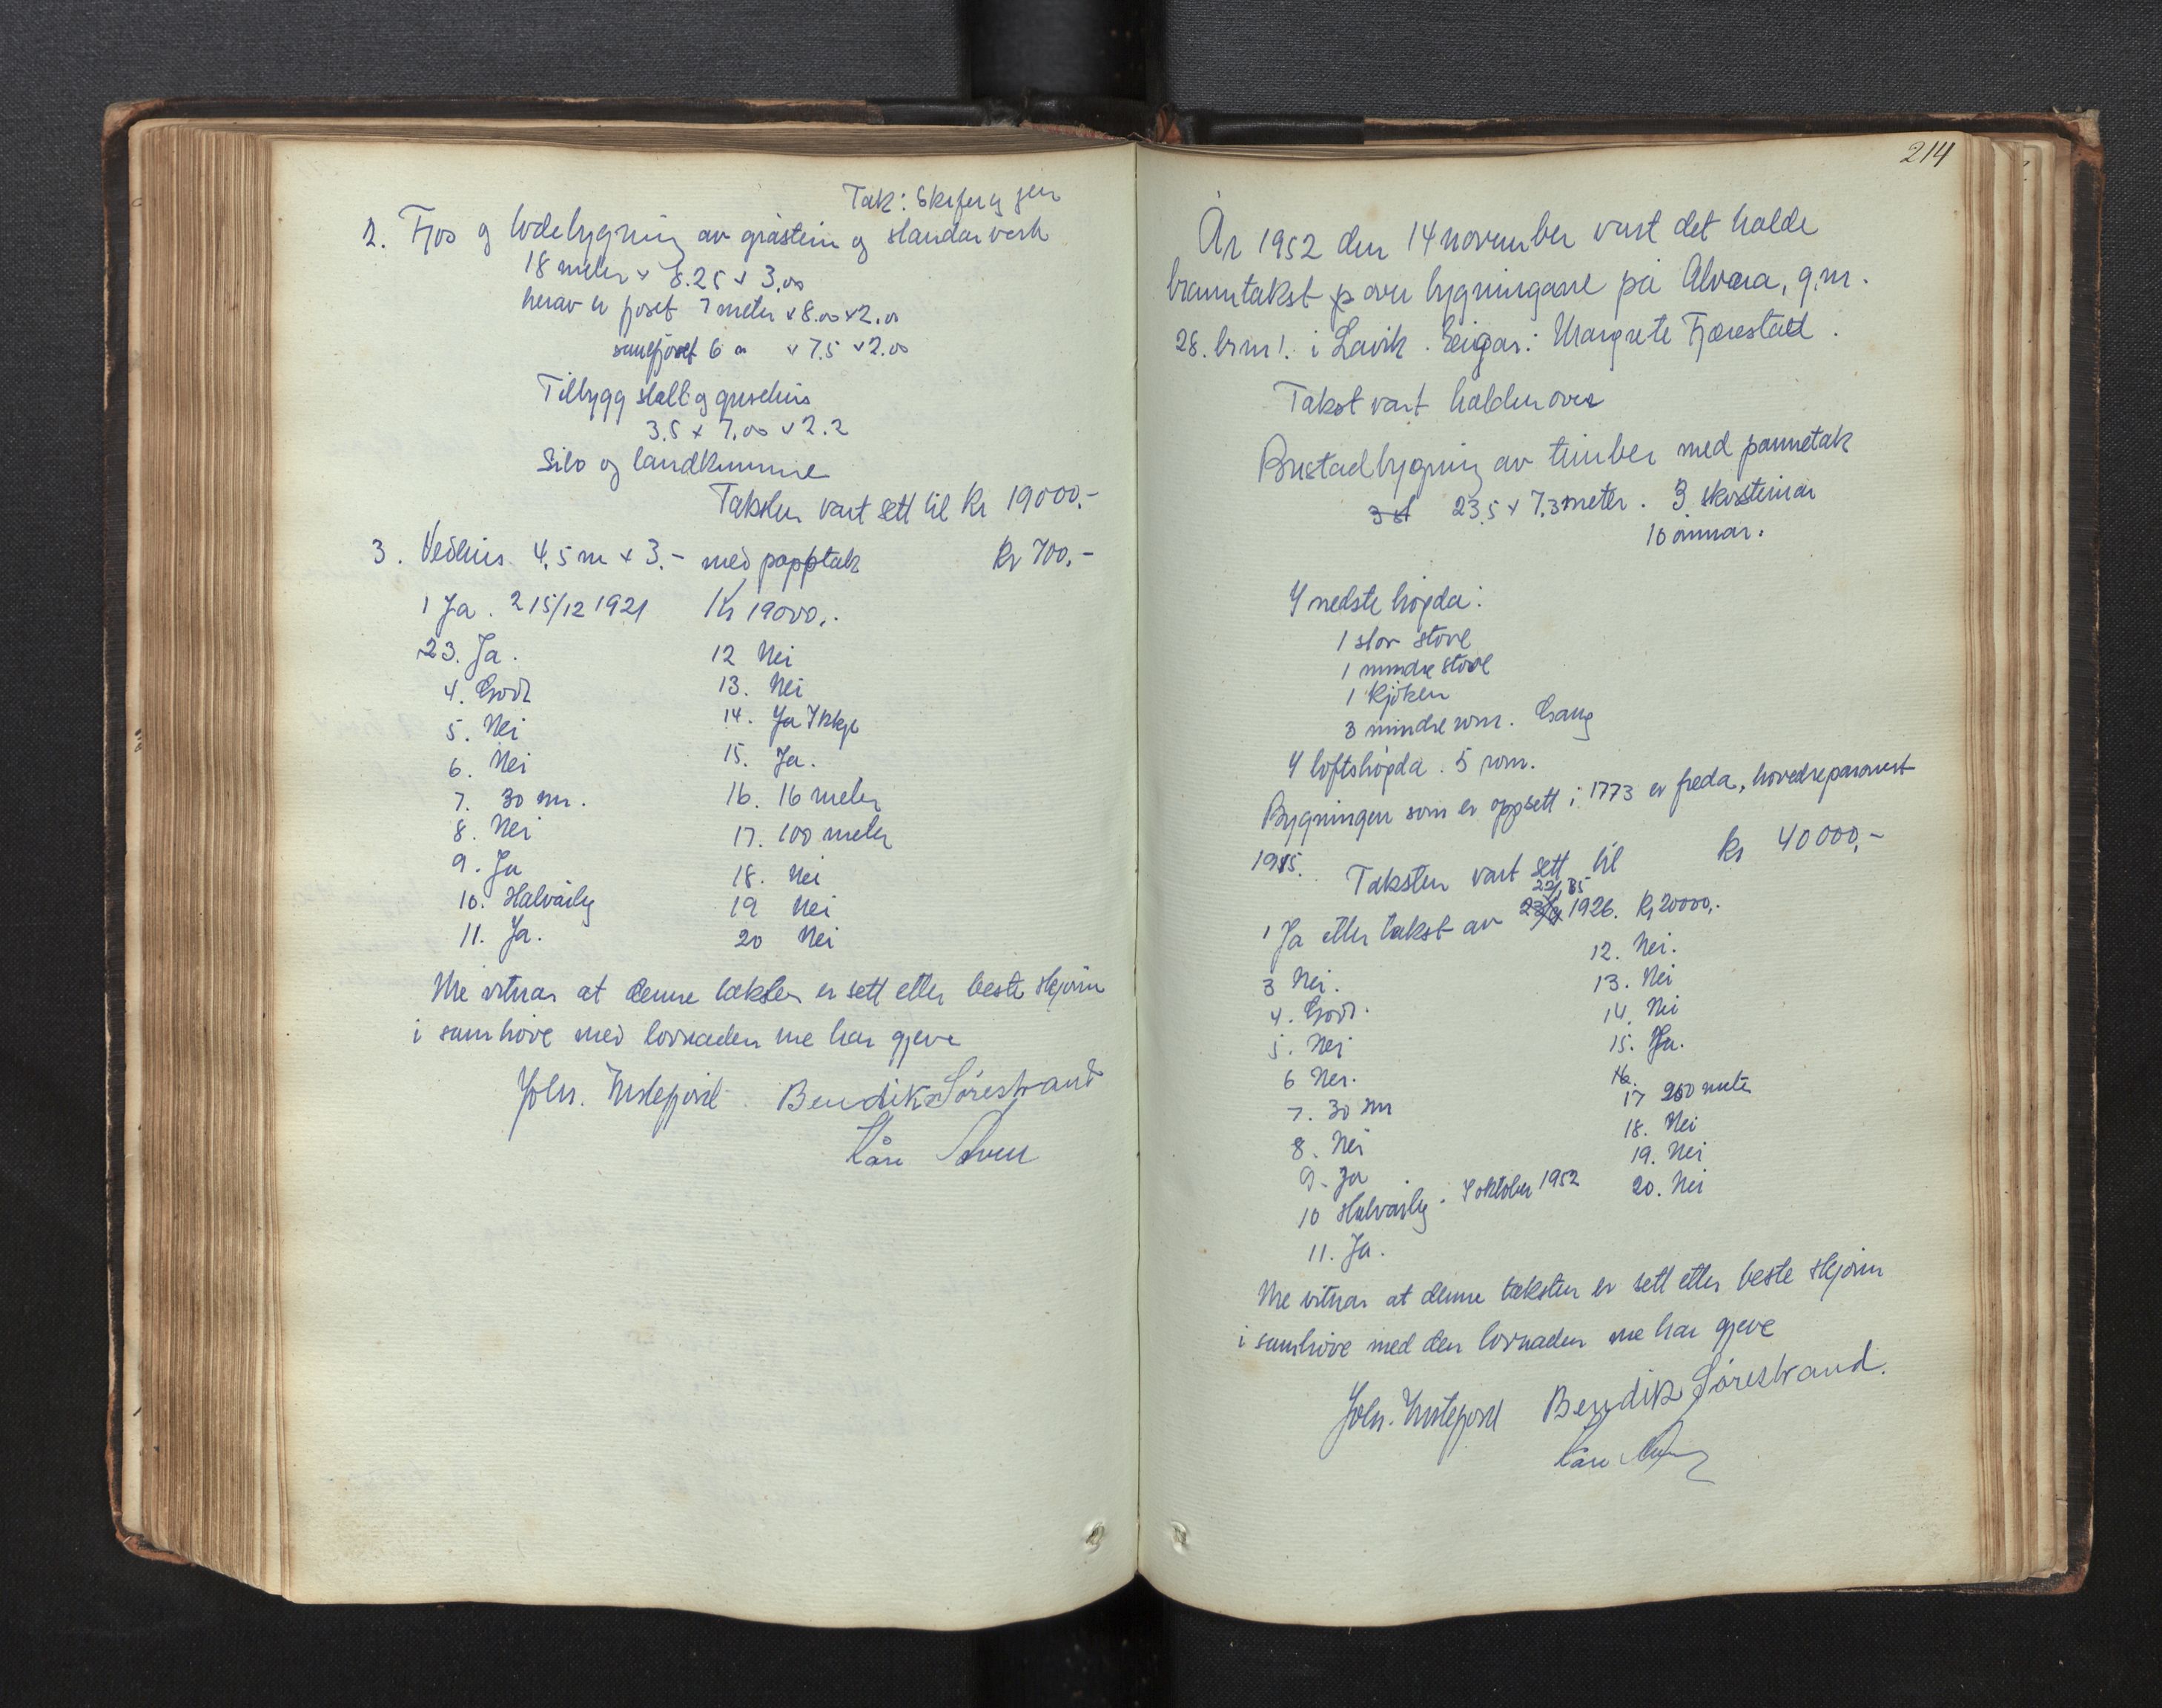 Tak: Skifer og jen
2. Fjos og lödebygning av gråstein og standarverk
18 meter x 8.25 x 3.00
herav er fjoset 7 meter x 8.00 x 2.00
sauefjoset 6 " x 7.5 x 2.00
Tilbygg stall og grisehus
3.5 x 7.00 x 2.2
Silo og landkumme
Taksten vart sett til Kr 19000.-
3. Vedhus 4.5 m x 3.- med papptak Kr 700.-
1 Ja. 2 15/12 1921 Kr 19000,-
3. Ja.
4. Godt
5. Nei
6. Nei
7. 30 m.
8. Nei
9. Ja
10. Halvårleg
11. Ja.
12 Nei
13. Nei
14. Ja Ikkje
15. Ja.
16. 16 meter
17. 100 meter
18. Nei
19 Nei
20 Nei
Me vitnar at denne taksten er sett etter beste skjönn
i samhöve med lovnaden me har gjeve
Johs. Instefjord Bendik Sörestrand
Kåre
214
År 1952 den 14 november vart det halde
branntakst p over bygningane på Alværa, g.nr.
28. br.nr 1. i Lavik. Eigar: Margrete Fjærestad.
Takst vart halden over
Bustadbygning av timber med pannetak
3 st 23.5 x 7.3 meter. 3 skorsteinar
10 omnar.
I nedste högda:
1 stor stove
1 mindre stove
1 Kjöken
3 mindre rom. Gang
I loftshögda. 5 rom.
Bygningen som er oppsett i 1773 er freda, hovedreparert
1915.
Taksten vart sett til Kr 40000,-
1 Ja etter takst av 1926. Kr 20000,-
3 Nei.
4. Godt.
5. Nei
6 Nei.
7. 30 m
8. Nei
9. Ja
10 Halvårleg. I oktober 1952
11. Ja.
12. Nei.
13. Nei
14. Nei
15. Ja.
16.
17 250 meter
18. Nei
19. Nei
20. Nei
Me vitnar at denne taksten er sett etter beste skjönn
i samhöve med den lovnaden me har gjeve
Johs. Instefjord Bendik Sörestrand.
Kåre